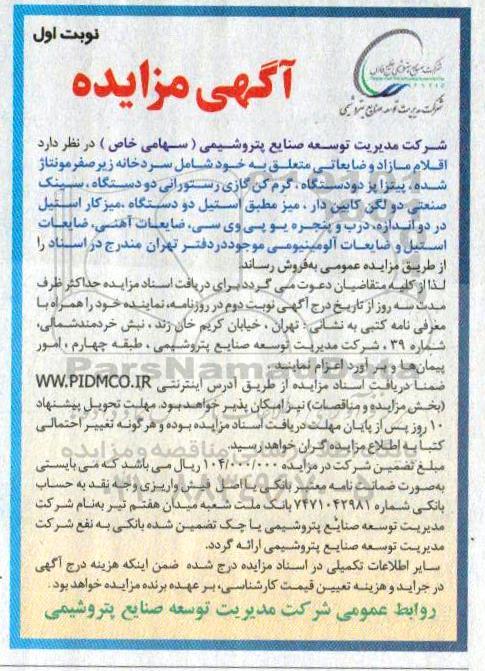 نوبت اول
شرکت مدیریت توسعه صنایع پتروشیمی
آگهی مزایده
شرکت مدیریت توسعه صنایع پتروشیمی ( سهامی خاص ) در نظر دارد
اقلام مازاد و ضایعاتی متعلق به خود شامل سردخانه زیر صفر مونتاژ
شده ، پیتزا پز دودستگاه ، گرم کن گازی رستورانی دو دستگاه ، سینک
صنعتی دو لگن کابین دار ، میز مطبق استیل دو دستگاه ،میزکار استیل
در دو اندازه، درب و پنجره یو پی وی سی، ضایعات آهنی، ضایعات
استیل و ضایعات آلومینیومی موجوددردفتر تهران مندرج در اسناد را
از طریق مزایده عمومی به‌فروش رساند.
لذا از کلیه متقاضیان دعوت می گردد برای دریافت اسناد مزایده حداکثر ظرف
مدت سه روز از تاریخ درج آگهی نوبت دوم در روزنامه، نماینده خود را همراه با
معرفی نامه کتبی به نشانی : تهران ، خیابان کریم خان زند ، نبش خردمندشمالی،
شماره ۳۹ ، شرکت مدیریت توسعه صنایع پتروشیمی ، طبقه چهارم ، امور
پیمان ها و برآورد اعزام نمایند.
ضمنا دریافت اسناد مزایده از طریق آدرس اینترنتی WW.PIDMCO.IR
(بخش مزایده و مناقصات) نیز امکان پذیر خواهد بود. مهلت تحویل پیشنهاد
۱۰ روز پس از پایان مهلت دریافت اسناد مزایده بوده و هرگونه تغییر احتمالی
کتبا به اطلاع مزایده گران خواهد رسید.
مبلغ تضمین شرکت در مزایده ۱۰۴/۰۰۰/۰۰۰ ریال می باشد که می بایستی
به‌صورت ضمانت نامه معتبر بانکی یا اصل فیش واریزی وجه نقد به حساب
بانکی شماره ۷۴۷۱۰۴۲۹۸۱ بانک ملت شعبه میدان هفتم تیر به‌نام شرکت
مدیریت توسعه صنایع پتروشیمی یا چک تضمین شده بانکی به نفع شرکت
مدیریت توسعه صنایع پتروشیمی ارائه گردد.
سایر اطلاعات تکمیلی در اسناد مزایده درج شده ضمن اینکه هزینه درج آگهی
در جراید و هزینه تعیین قیمت کارشناسی، بر عهده برنده مزایده خواهد بود.
روابط عمومی شرکت مدیریت توسعه صنایع پتروشیمی